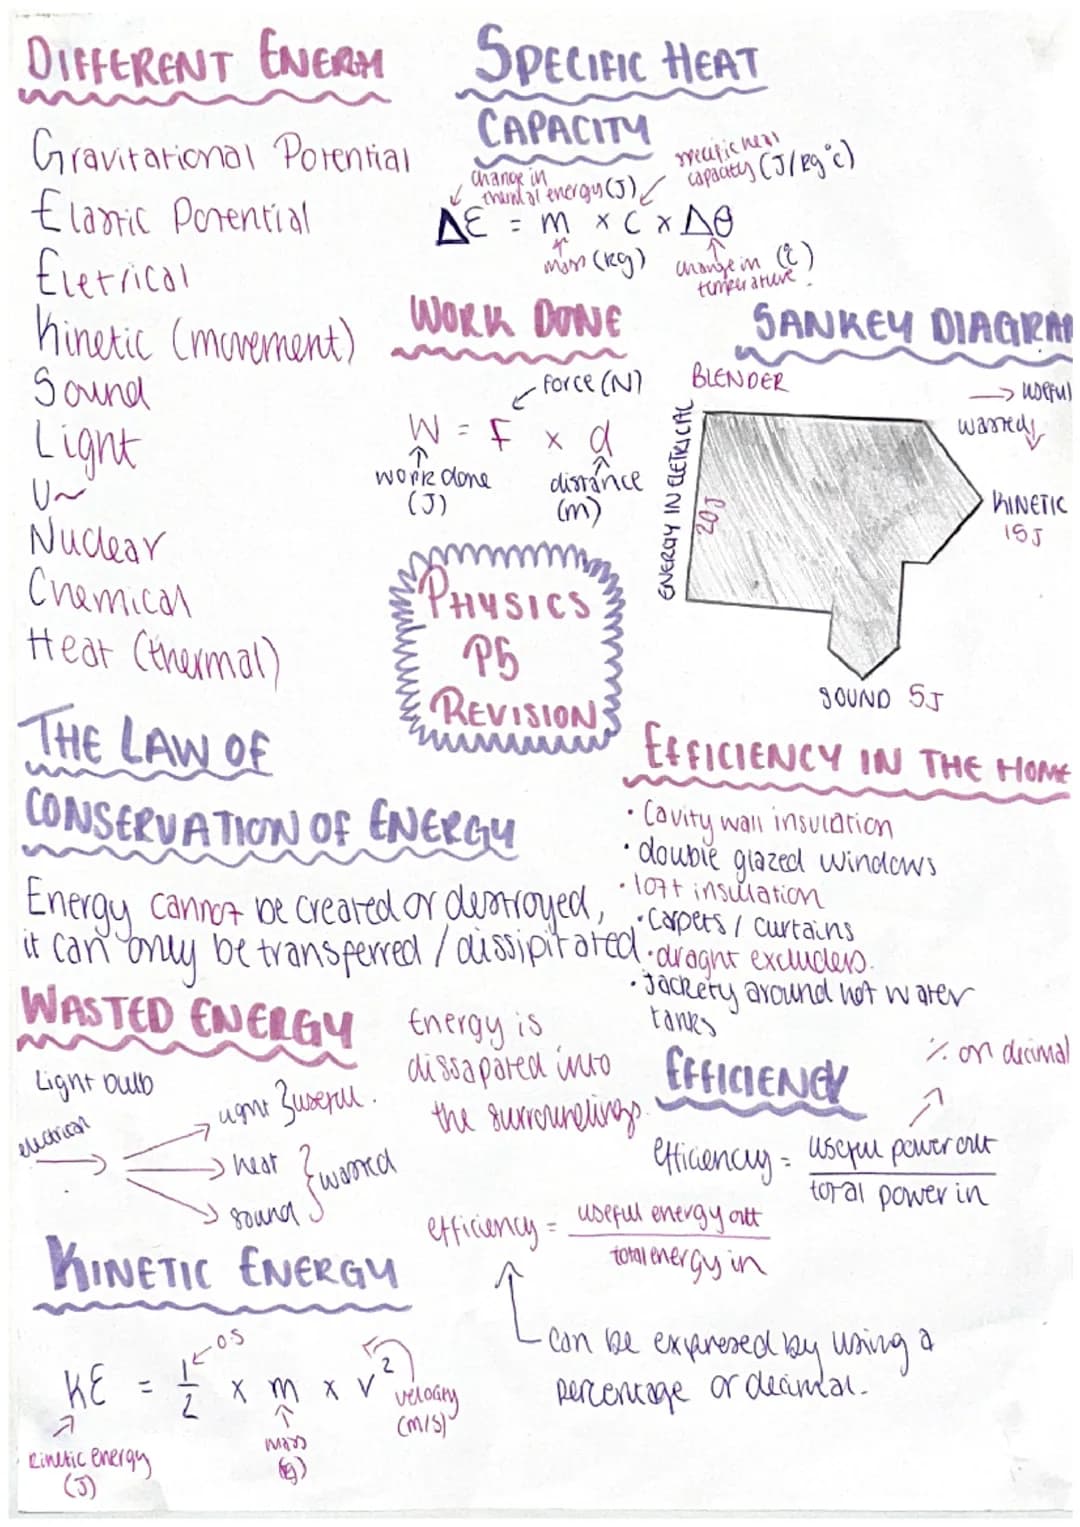 DIFFERENT ENERGY
Gravitational Potential
Elastic Potential
Eletrical
Kinetic (movement)
Sound
Light
Nuclear
Chemical
Heat (thermal)
SPECIFIC HEAT
CAPACITY
change in
thermal energy (J)
specific heat
capacity (J/kg°c)
ΔE = m × c × Δθ
mass (kg)
change in (°c)
temperature.
WORK DONE
force (N)
W = F × d
work done
(J)
distance
(m)
SANKEY DIAGRAM
BLENDER
→ useful
wasted ↓
ENERGY IN ELETRICAL
20J
KINETIC
15J
SOUND 5J
PHYSICS
P5
REVISION
THE LAW OF
CONSERVATION OF ENERGY
Energy cannot be created or destroyed,
it can only be transferred / dissipitated
EFFICIENCY IN THE HOME
• Cavity wall insulation
• double glazed windows
• loft insulation
• carpets / curtains
• draght excluders.
• Jackety around hot water
tanks
WASTED ENERGY
Light bulb
electrical
light } useful.
heat
sound } wasted
Energy is
dissapated into
the surroundings.
EFFICIENCY
% or decimal
efficiency = useful power out
total power in
efficiency = useful energy out
total energy in
can be expressed by using a
percentage or decimal.
KINETIC ENERGY
0.5
KE = 1/2 × m × v²
velocity
(m/s)
kinetic energy
(J)
mass